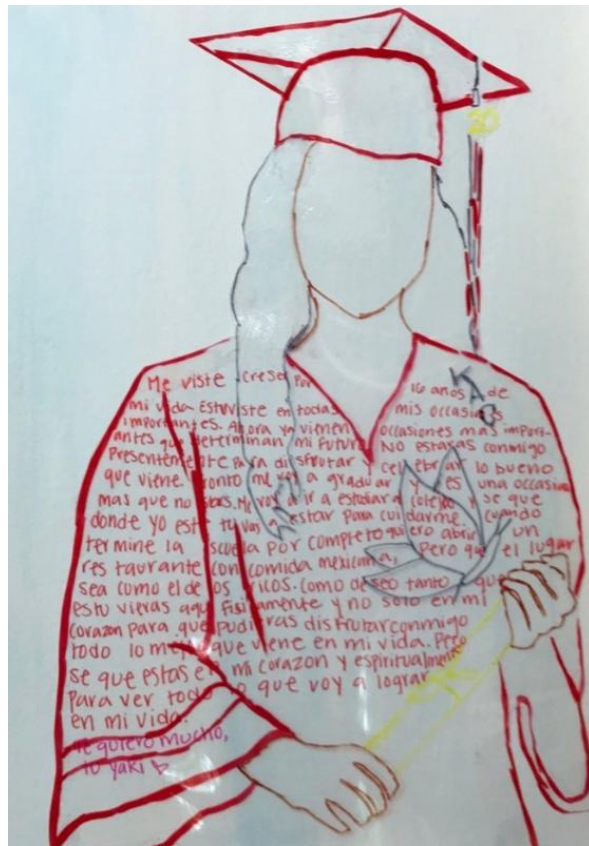 20
Me viste creser por 16 anos de
mi vida Estuviste en todas mis occasiones
importantes. Ahora ya vienen occasiones mas import-
antes que determinan mi futuro NO estaras conmigo
Presentemente Para disfrutar y celebrar lo bueno
que viene Pronto me voy a graduar y es una occasion
mas que no estaras. Me voy a ir a estudiar a colege y se que
donde yo este tu vas a estar Para cuidarme. Cuando
termine la scuela Por completo quiero abrir un
restaurante con comida mexicana, Pero que el lugar
sea como el de los ricos. Como deseo tanto que
estu vieras aqui Fisicamente y no solo en mi
corazon Para que pudieras disfrutar conmigo
todo lo mejor que viene en mi vida. Pero
se que estas en mi corazon y espiritualmente
Para ver todo lo que voy a lograr
en mi vida.
Te quiero mucho,
tu yaki